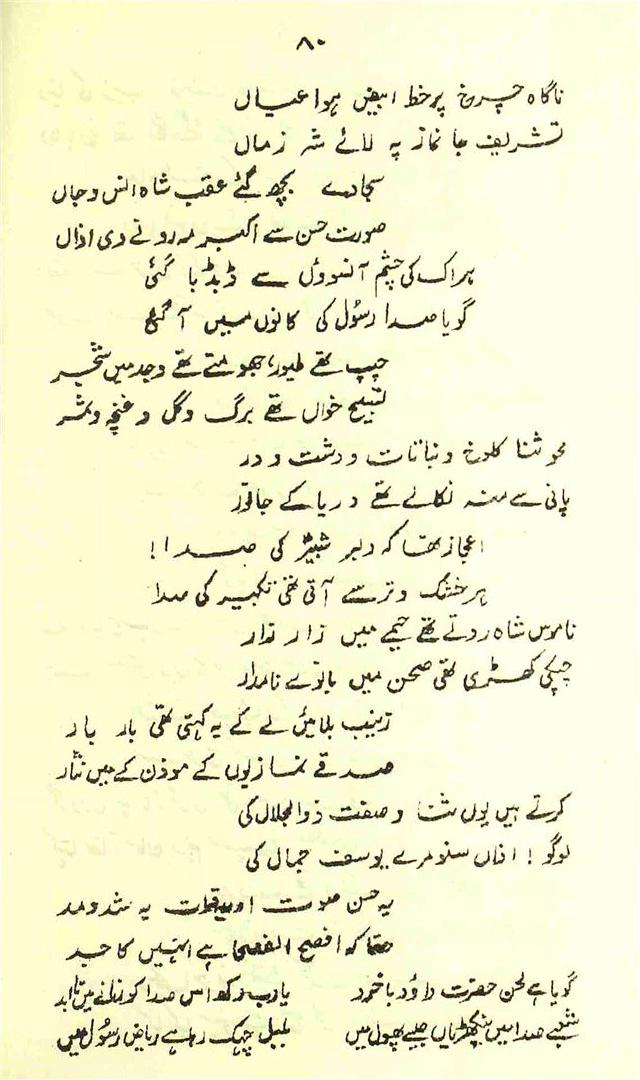 ۸۰
ناگاہ چرخ پر خط ابیض ہوا عیاں
تشریف جا نماز پہ لائے شہ زماں
سجادے بچھ گئے عقب شاہ انس و جاں
صورت حسن سے اکبر مہ رو نے دی اذاں
ہر اک کی چشم آنسوؤں سے ڈبڈبا گئی
گویا صدا رسولؐ کی کانوں میں آ گئی
چپ تھے طیور، جھومتے تھے وجد میں شجر
تسبیح خواں تھے برگ و گل و غنچہ و ثمر
محو ثنا کلوخ و نباتات و دشت و در
پانی سے منہ نکالے تھے دریا کے جانور
اعجاز تھا کہ دلبر شبیرؑ کی صدا!!
ہر خشک و تر سے آتی تھی تکبیر کی صدا
ناموس شاہ روتے تھے خیمے میں زار زار
چپکی کھڑی تھی صحن میں بانوے نامدار
زینب بلائیں لے کے یہ کہتی تھی بار بار
صدقے نمازیوں کے موذن کے میں نثار
کرتے ہیں یوں ثنا و صفت ذوالجلال کی
لوگو! اذاں سنو مرے یوسف جمال کی
یہ حسن صوت اور یہ قرأت یہ شد و مد
حقا کہ افصح الفصحا ہے انہیں کا جد
گویا ہے لحن حضرت داؤد با خرد یارب رکھ اس صدا کو زمانے میں تا ابد
شعبے صدا میں پنکھڑیاں جیسے پھول میں بلبل چہک رہا ہے ریاض رسولؐ میں